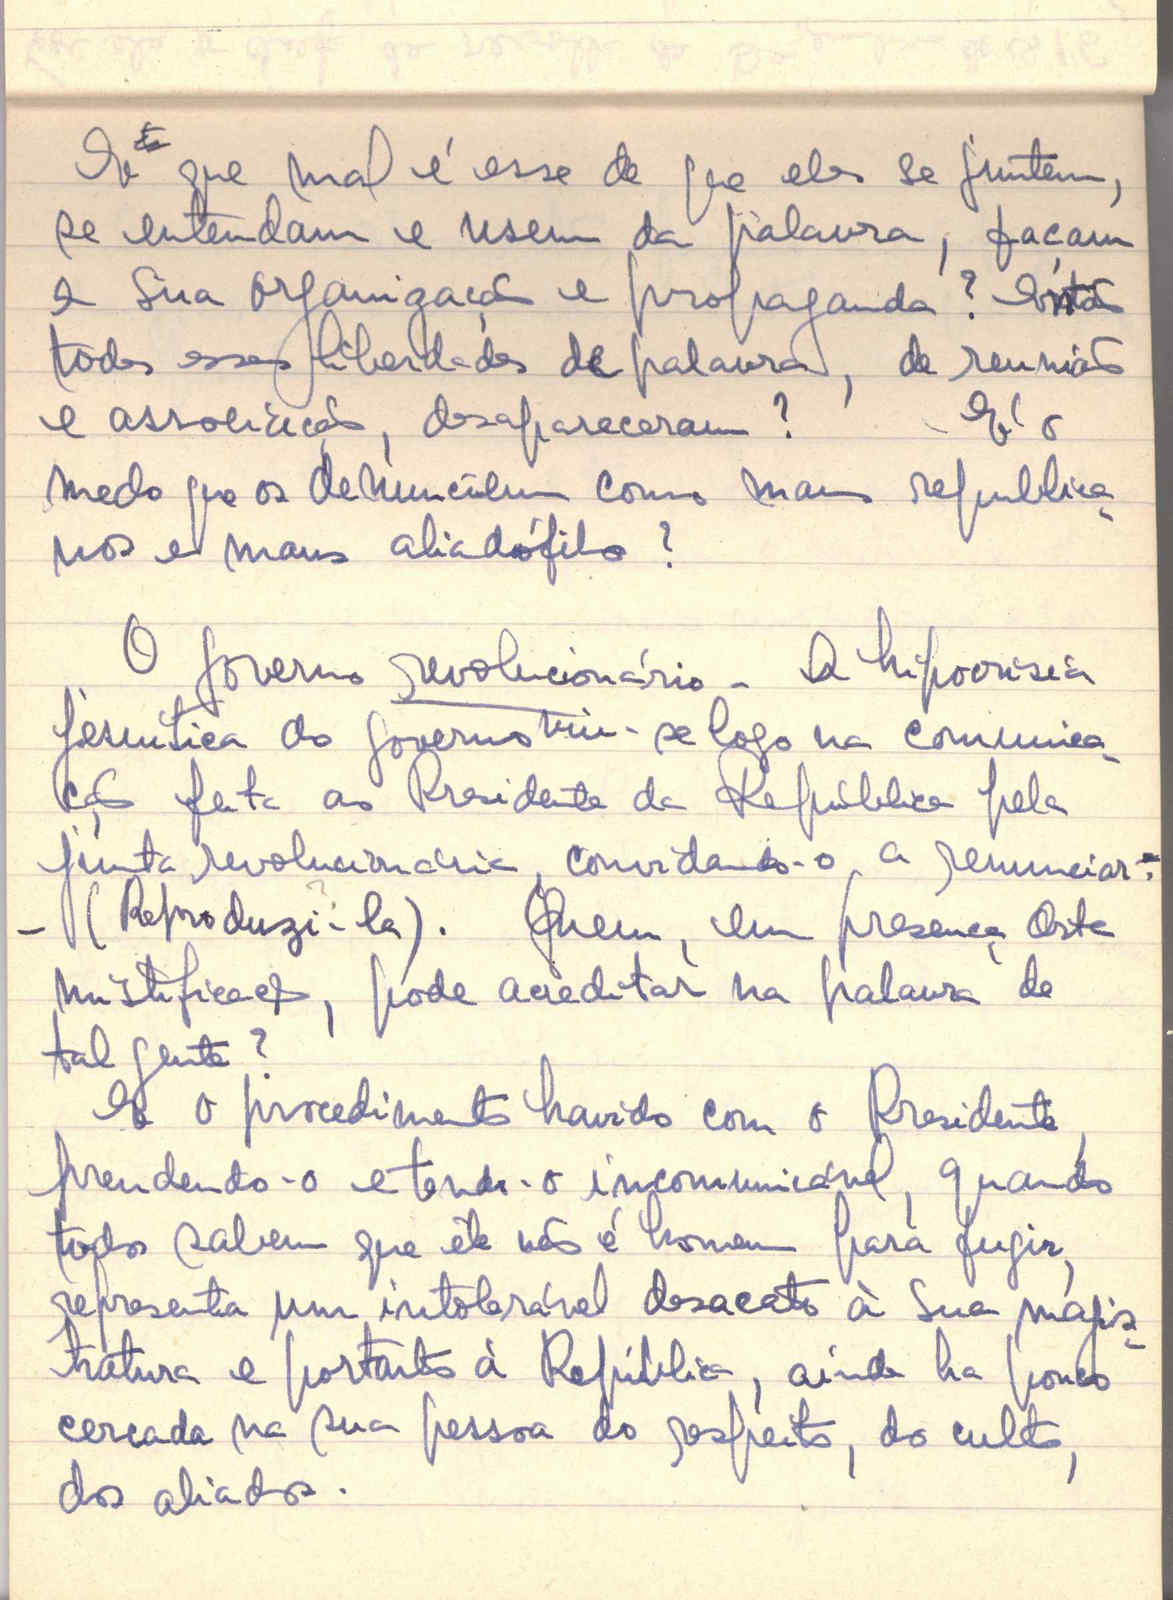 E que mal é esse de que eles se juntem,
se entendam e usem da palavra, façam
a sua organização e propaganda? Então
todas essas liberdades de palavra, de reunião
e associação, desapareceram? É o
medo que os denunciem como maus republica-
nos e maus aliadófilos?
O governo revolucionário - A hipocrisia
jesuítica do governo viu-se logo na comunica-
ção feita ao Presidente da República pela
junta revolucionária, convidando-o a renunciar:
- (Reproduzi-la). Quem, em presença desta
mistificação, pode acreditar na palavra de
tal gente?
E o procedimento havido com o Presidente,
prendendo-o e tendo-o incomunicável, quando
todos sabem que êle não é homem para fugir,
representa um intolerável desacato à sua magis-
tratura e portanto à República, ainda ha pouco
cercada na sua pessoa do respeito, do culto,
dos aliados.